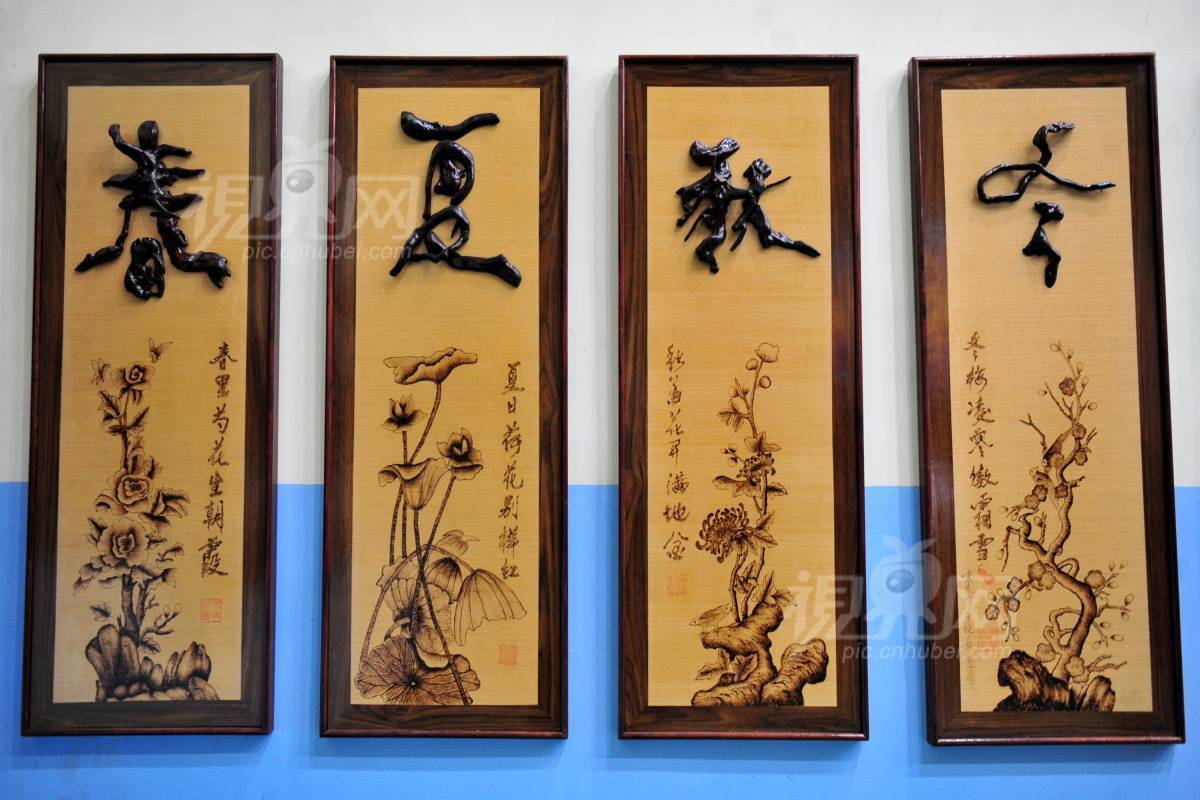 春
夏
秋
冬
春里芍花生朝霞
夏日荷花别样红
秋菊花开满地金
冬梅凌寒傲霜雪
視界网
pic.cnhubei.com
視界网
pic.cnhubei.com